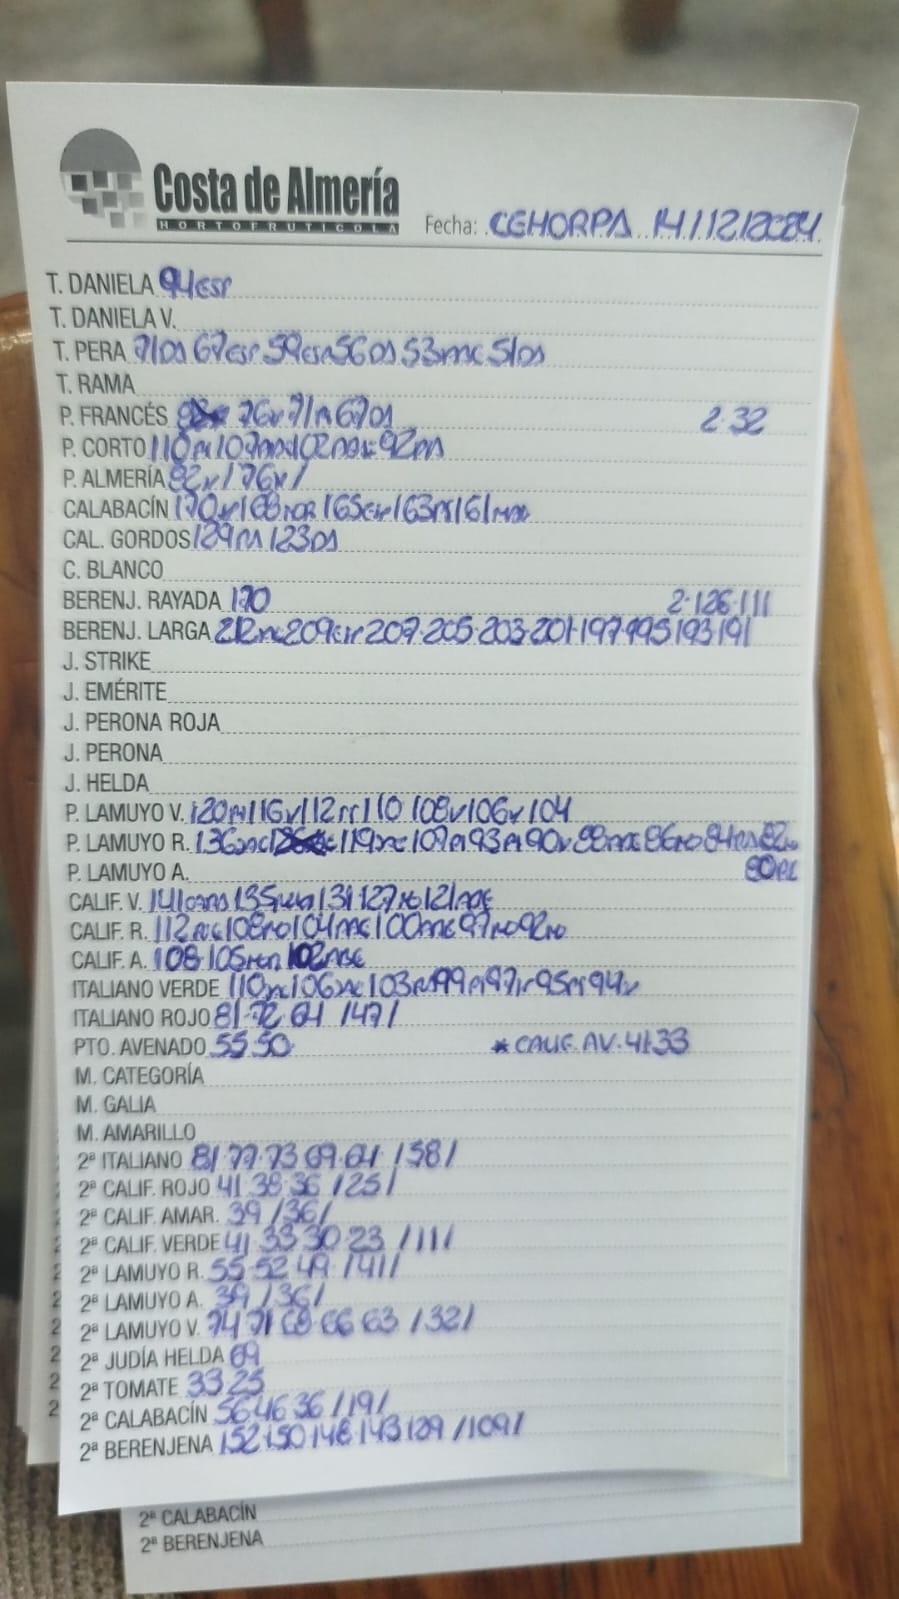 Costa de Almería
HORTOFRUTICOLA
Fecha: CEHORPA 14/12/2024
T. DANIELA 94
T. DANIELA V.
T. PERA 71 67 59 56 53 51
T. RAMA
P. FRANCÉS 76 71 67 2.32
P. CORTO 110 107 102 92
P. ALMERÍA 82 /76 /
CALABACÍN 170 168 165 163 161
CAL. GORDOS 129 123
C. BLANCO
BERENJ. RAYADA 170 2.126.111
BERENJ. LARGA 212 209 207.205.203.201.197.195.193.191
J. STRIKE
J. EMÉRITE
J. PERONA ROJA
J. PERONA
J. HELDA
P. LAMUYO V. 120 116 112 110 108 106 104
P. LAMUYO R. 136 119 107 93 90 88 86 84 82
P. LAMUYO A. 80
CALIF. V. 141 135 131.127 121
CALIF. R. 112 108 104 100 97 92
CALIF. A. 108.105 102
ITALIANO VERDE 110 106 103 99 97 95 94
ITALIANO ROJO 81.72.64 /47/
PTO. AVENADO 55.50 *CALIF. AV. 41.33
M. CATEGORÍA
M. GALIA
M. AMARILLO
2ª ITALIANO 81.77.73.69.64 /58/
2ª CALIF. ROJO 41.38.36 /25/
2ª CALIF. AMAR. 39 /36/
2ª CALIF. VERDE 41.33.30.23 /11/
2ª LAMUYO R. 55.52.49 /41/
2ª LAMUYO A. 39 /36/
2ª LAMUYO V. 74.71.68.66.63 /32/
2ª JUDÍA HELDA 69
2ª TOMATE 33.25
2ª CALABACÍN 56.46.36 /19/
2ª BERENJENA 152.150.148.143.139 /109/
2ª CALABACÍN
2ª BERENJENA